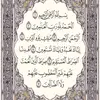 بِسْمِ اللَّهِ الرَّحْمَٰنِ الرَّحِيمِ
الْحَمْدُ لِلَّهِ رَبِّ الْعَالَمِينَ
الرَّحْمَٰنِ الرَّحِيمِ مَالِكِ يَوْمِ الدِّينِ
إِيَّاكَ نَعْبُدُ وَإِيَّاكَ نَسْتَعِينُ
اهْدِنَا الصِّرَاطَ الْمُسْتَقِيمَ
صِرَاطَ الَّذِينَ أَنْعَمْتَ عَلَيْهِمْ
غَيْرِ الْمَغْضُوبِ عَلَيْهِمْ
وَلَا الضَّالِّينَ